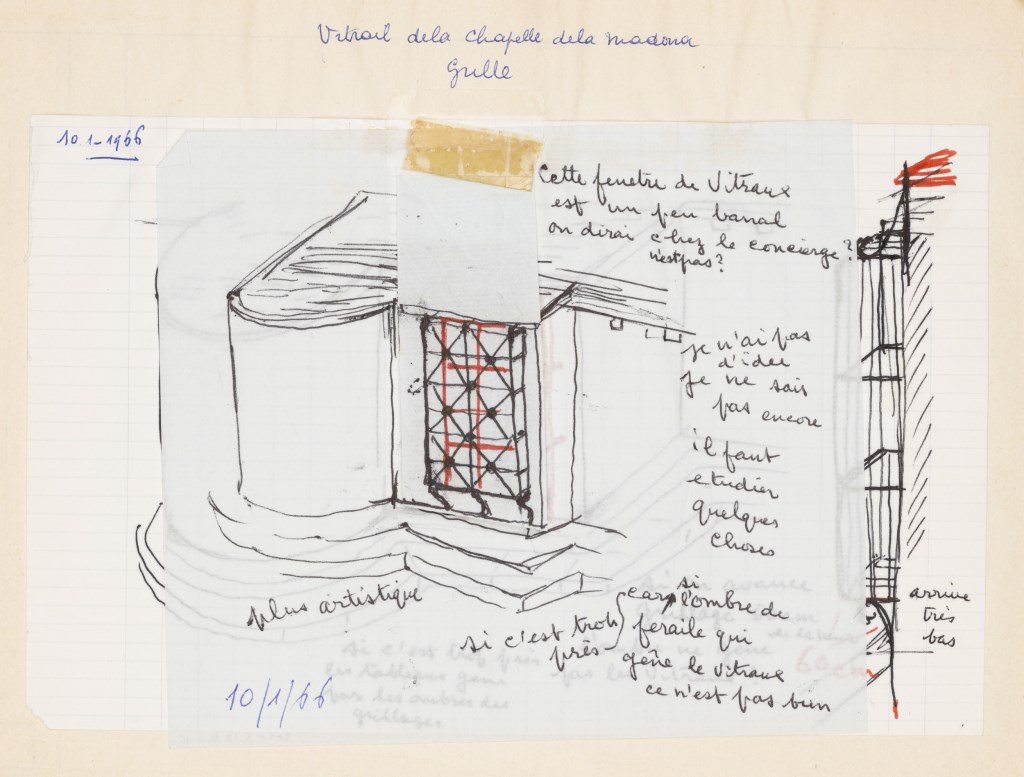 Vitrail dela chapelle dela madona
Grille
10.1-1966
Cette fenetre de Vitraux
est un peu banal
on dirai chez le concierge?
n'estpas?
je n'ai pas
d'idée
je ne sais
pas encore
il faut
etudier
quelques
choses
arrive
très
bas
plus artistique
si c'est trob
près
car si l'ombre de
feraile qui
gêne le vitraux
ce n'est pas bien
si on avance
60cm
si c'est trop près
les tableaux
par les ombres des
grillages
10/1/66